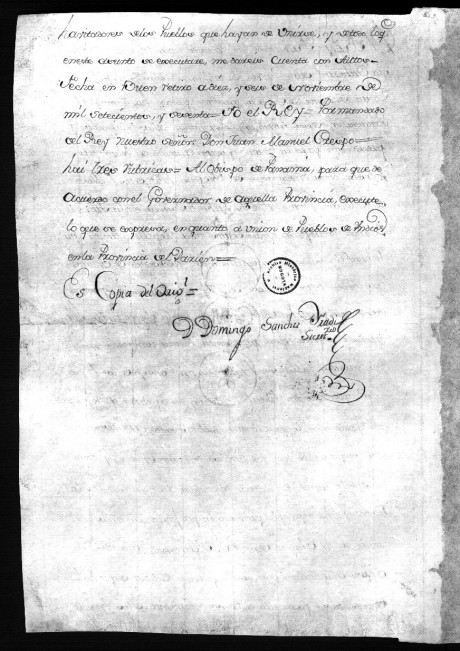 havitadores delos Pueblos que hayan de Unirse, y detodo lo q.
eneste asunto se executare, me dareis Cuenta con Autos-
fecha en Buen retiro adiez, y seis de Noviembre De
mil setecientos, y sesenta= Yo el REY= Por mandado
del Rey Nuestro señor= Don Juan Manuel Crespo=
hai tres rubricas= Al Obispo de Panamá, para que de
acuerdo con el Governador de aquella Provincia, execute
lo que se expresa, en quanto à Union de Pueblos de Yndios
en la Provincia del Darièn=
Es Copia del Orig.l=
D Domingo Sanchez